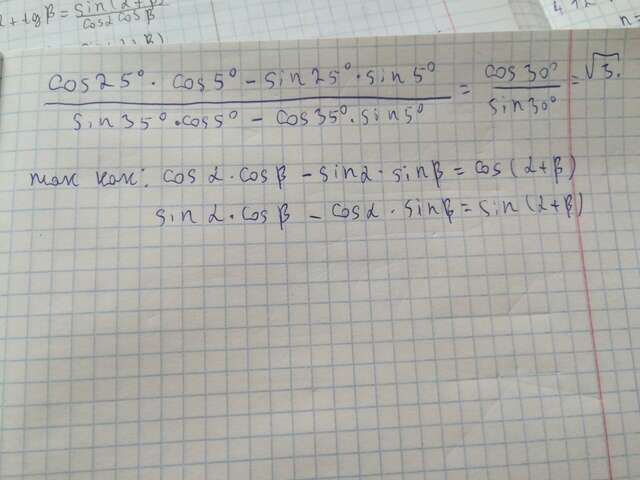 + tg β = sin(α+β) / cosα cosβ
cos25° · cos5° - sin25° · sin5° / sin35° · cos5° - cos35° · sin5° = cos30° / sin30° = √3.
так как: cos α · cos β - sin α · sin β = cos (α+β)
sin α · cos β - cos α · sin β = sin (α+β)